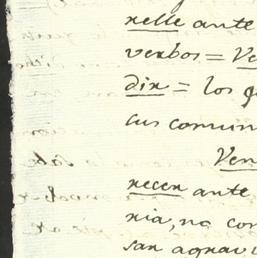 relle ante
verbos = Ve
dix = los q
cus comun
Ven
recen ante
ria, no con
san agrav